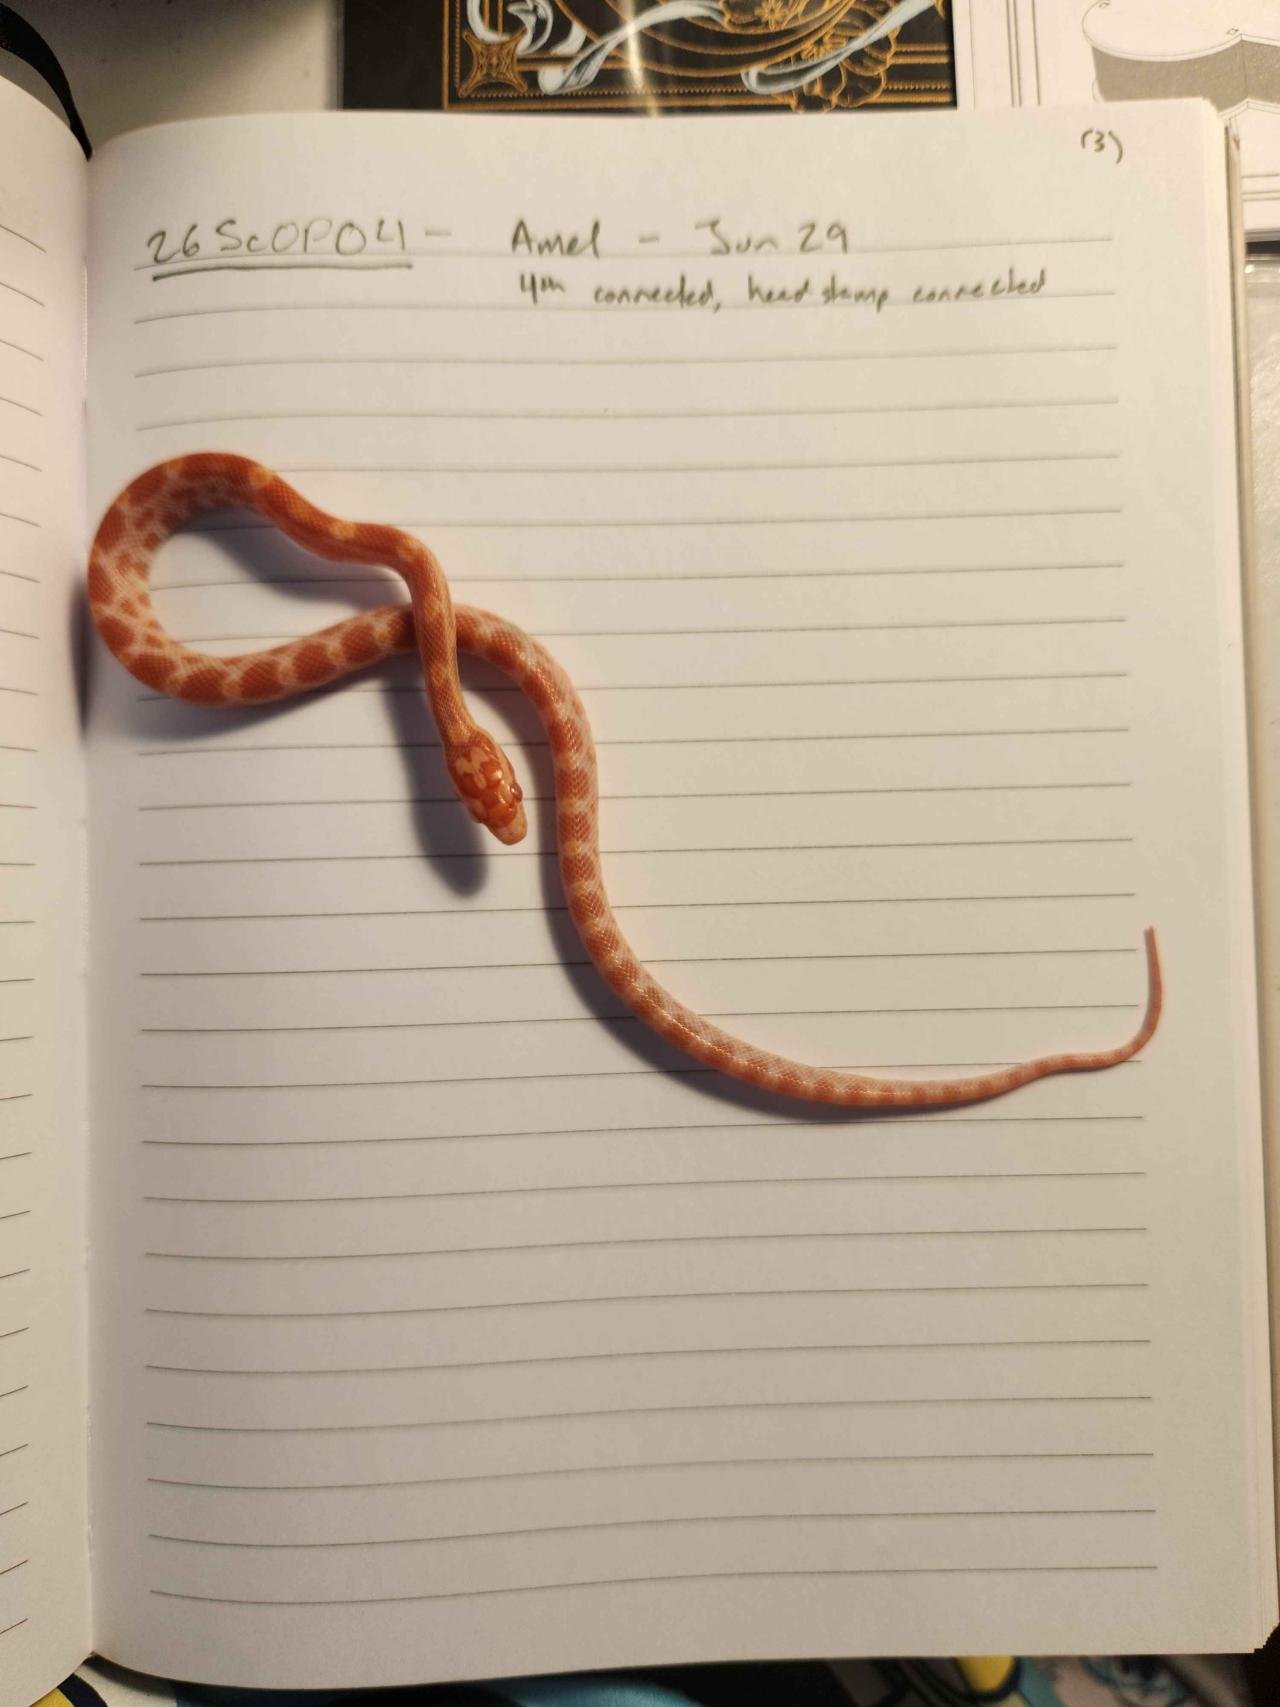 (3)
26ScOPO41 - Amel - Jun 29
4th connected, head stamp connected